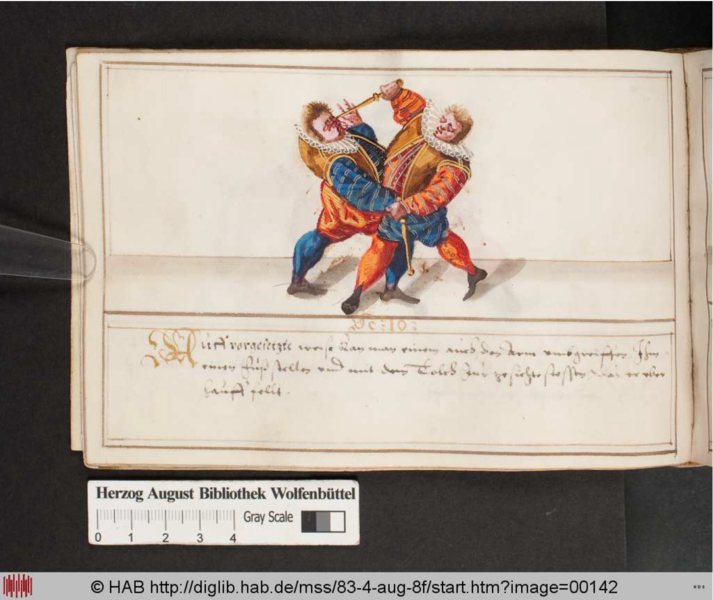 No: 10:
Auff vorgesetzte weise kan man einem auch den Arm umbgreiffen, Ihm
einen fuß stellen und mit dem Tolch zum gesichte stossen, das er uber
hauff fellt.
Herzog August Bibliothek Wolfenbüttel
Gray Scale
0 1 2 3 4
© HAB http://diglib.hab.de/mss/83-4-aug-8f/start.htm?image=00142